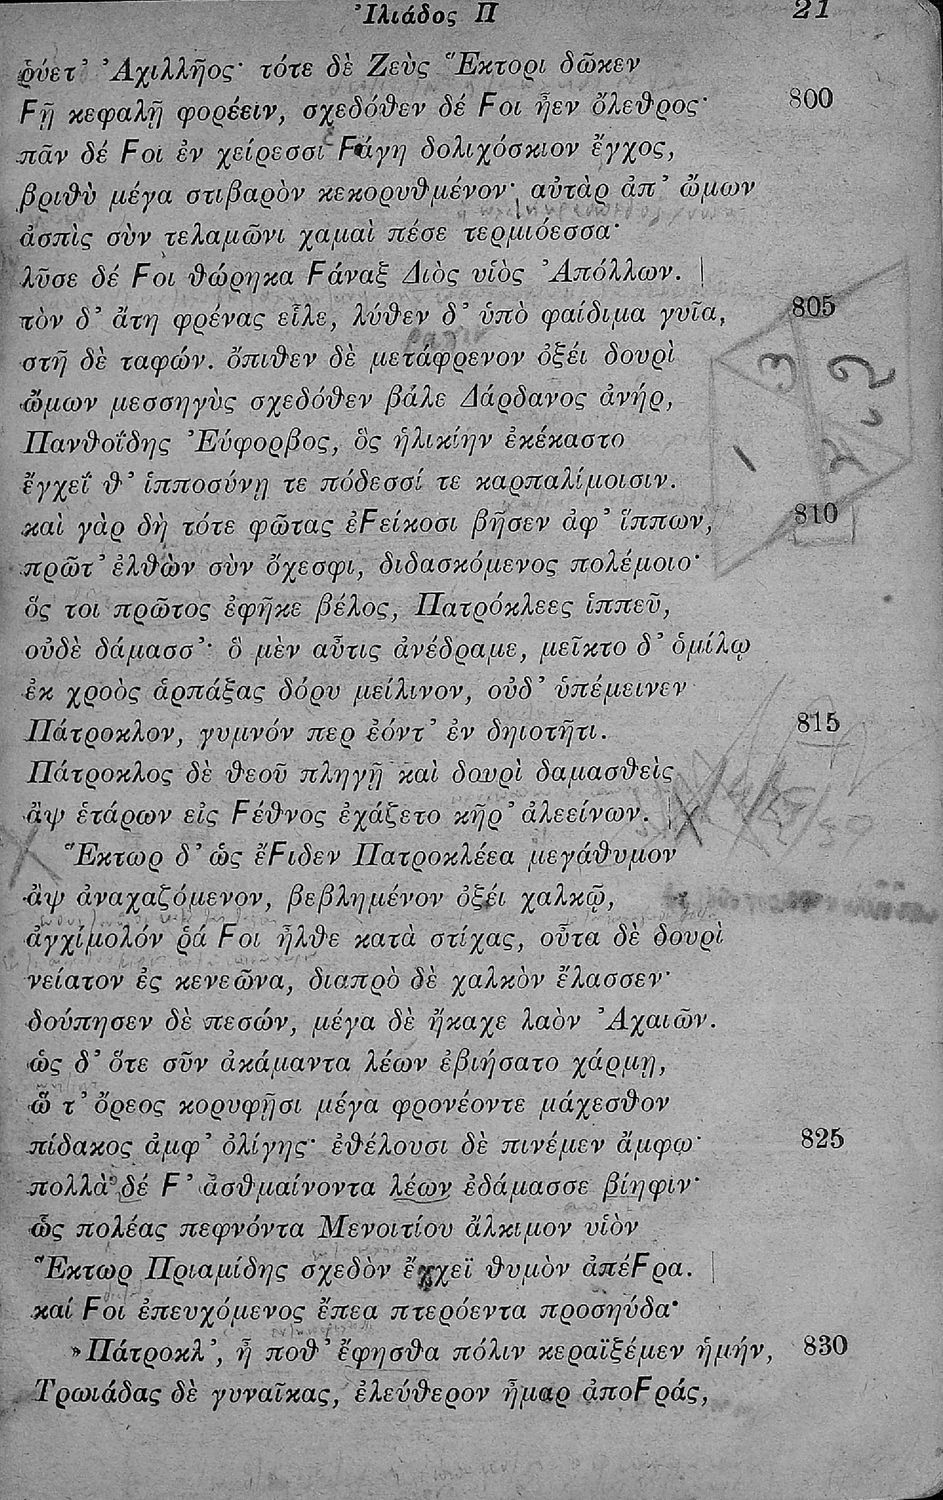 Ἰλιάδος Π 21
ῥύετ’ Ἀχιλλῆος· τότε δὲ Ζεὺς Ἕκτορι δῶκεν
Ϝῇ κεφαλῇ φορέειν, σχεδόθεν δέ Ϝοι ἦεν ὄλεθρος· 800
πᾶν δέ Ϝοι ἐν χείρεσσι Ϝάγη δολιχόσκιον ἔγχος,
βριθὺ μέγα στιβαρὸν κεκορυθμένον· αὐτὰρ ἀπ’ ὤμων
ἀσπὶς σὺν τελαμῶνι χαμαὶ πέσε τερμιόεσσα·
λῦσε δέ Ϝοι θώρηκα Ϝάναξ Διὸς υἱὸς Ἀπόλλων.
τὸν δ’ ἄτη φρένας εἷλε, λύθεν δ’ ὑπὸ φαίδιμα γυῖα, 805
στῆ δὲ ταφών. ὄπιθεν δὲ μετάφρενον ὀξέι δουρὶ
ὤμων μεσσηγὺς σχεδόθεν βάλε Δάρδανος ἀνήρ,
Πανθοΐδης Εὔφορβος, ὃς ἡλικίην ἐκέκαστο
ἔγχεΐ θ’ ἱπποσύνῃ τε πόδεσσί τε καρπαλίμοισιν.
καὶ γὰρ δὴ τότε φῶτας ἐϜείκοσι βῆσεν ἀφ’ ἵππων, 810
πρῶτ’ ἐλθὼν σὺν ὄχεσφι, διδασκόμενος πολέμοιο·
ὅς τοι πρῶτος ἐφῆκε βέλος, Πατρόκλεες ἱππεῦ,
οὐδὲ δάμασσ’· ὃ μὲν αὖτις ἀνέδραμε, μεῖκτο δ’ ὁμίλῳ
ἐκ χροὸς ἁρπάξας δόρυ μείλινον, οὐδ’ ὑπέμεινεν
Πάτροκλον, γυμνόν περ ἐόντ’ ἐν δηιοτῆτι. 815
Πάτροκλος δὲ θεοῦ πληγῇ καὶ δουρὶ δαμασθεὶς
ἂψ ἑτάρων εἰς Ϝέθνος ἐχάζετο κῆρ’ ἀλεείνων.
Ἕκτωρ δ’ ὡς ἔϜιδεν Πατροκλέεα μεγάθυμον
ἂψ ἀναχαζόμενον, βεβλημένον ὀξέι χαλκῷ,
ἀγχίμολόν ῥά Ϝοι ἦλθε κατὰ στίχας, οὖτα δὲ δουρὶ
νείατον ἐς κενεῶνα, διαπρὸ δὲ χαλκὸν ἔλασσεν·
δούπησεν δὲ πεσών, μέγα δὲ ἤκαχε λαὸν Ἀχαιῶν.
ὡς δ’ ὅτε σῦν ἀκάμαντα λέων ἐβιήσατο χάρμῃ,
ὥ τ’ ὄρεος κορυφῇσι μέγα φρονέοντε μάχεσθον
πίδακος ἀμφ’ ὀλίγης· ἐθέλουσι δὲ πινέμεν ἄμφω· 825
πολλὰ δέ Ϝ’ ἀσθμαίνοντα λέων ἐδάμασσε βίηφιν·
ὣς πολέας πεφνόντα Μενοιτίου ἄλκιμον υἱὸν
Ἕκτωρ Πριαμίδης σχεδὸν ἔγχεϊ θυμὸν ἀπέϜρα.
καί Ϝοι ἐπευχόμενος ἔπεα πτερόεντα προσηύδα·
»Πάτροκλ’, ἦ ποθ’ ἔφησθα πόλιν κεραϊξέμεν ἡμήν, 830
Τρωιάδας δὲ γυναῖκας, ἐλεύθερον ἦμαρ ἀποϜράς,